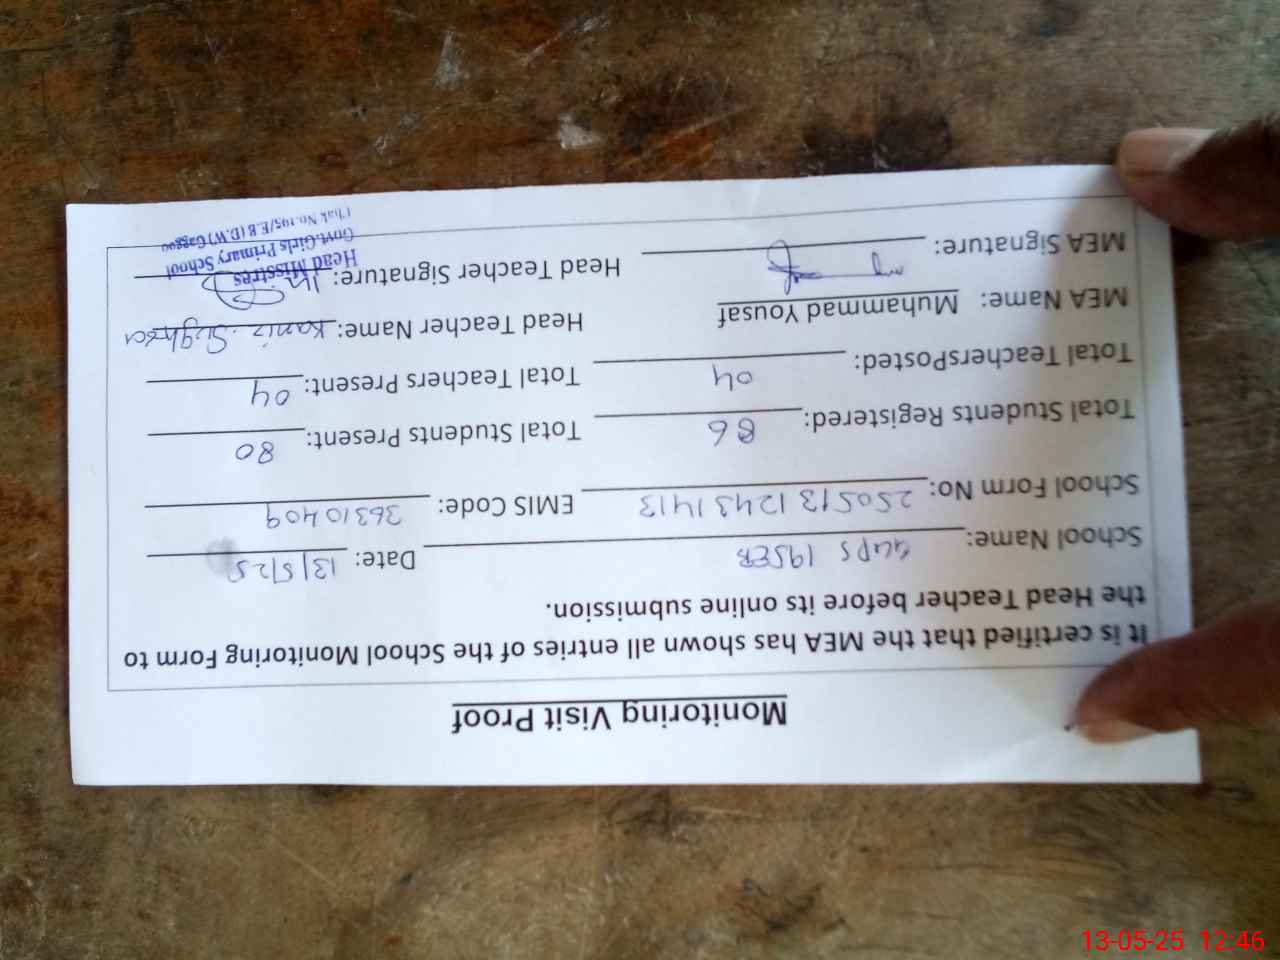 Monitoring Visit Proof
It is certified that the MEA has shown all entries of the School Monitoring Form to
the Head Teacher before its online submission.
School Name: GGPS 195EB Date: 13/5/25
School Form No: 25051312431413 EMIS Code: 36310409
Total Students Registered: 86 Total Students Present: 80
Total TeachersPosted: 04 Total Teachers Present: 04
MEA Name: Muhammad Yousaf Head Teacher Name: Kaniz Sughra
MEA Signature: Head Teacher Signature:
Head Misstres
Govt.Girls Primary School
Chak No.195/E.B (D.W) Gaggoo
13-05-25 12:46